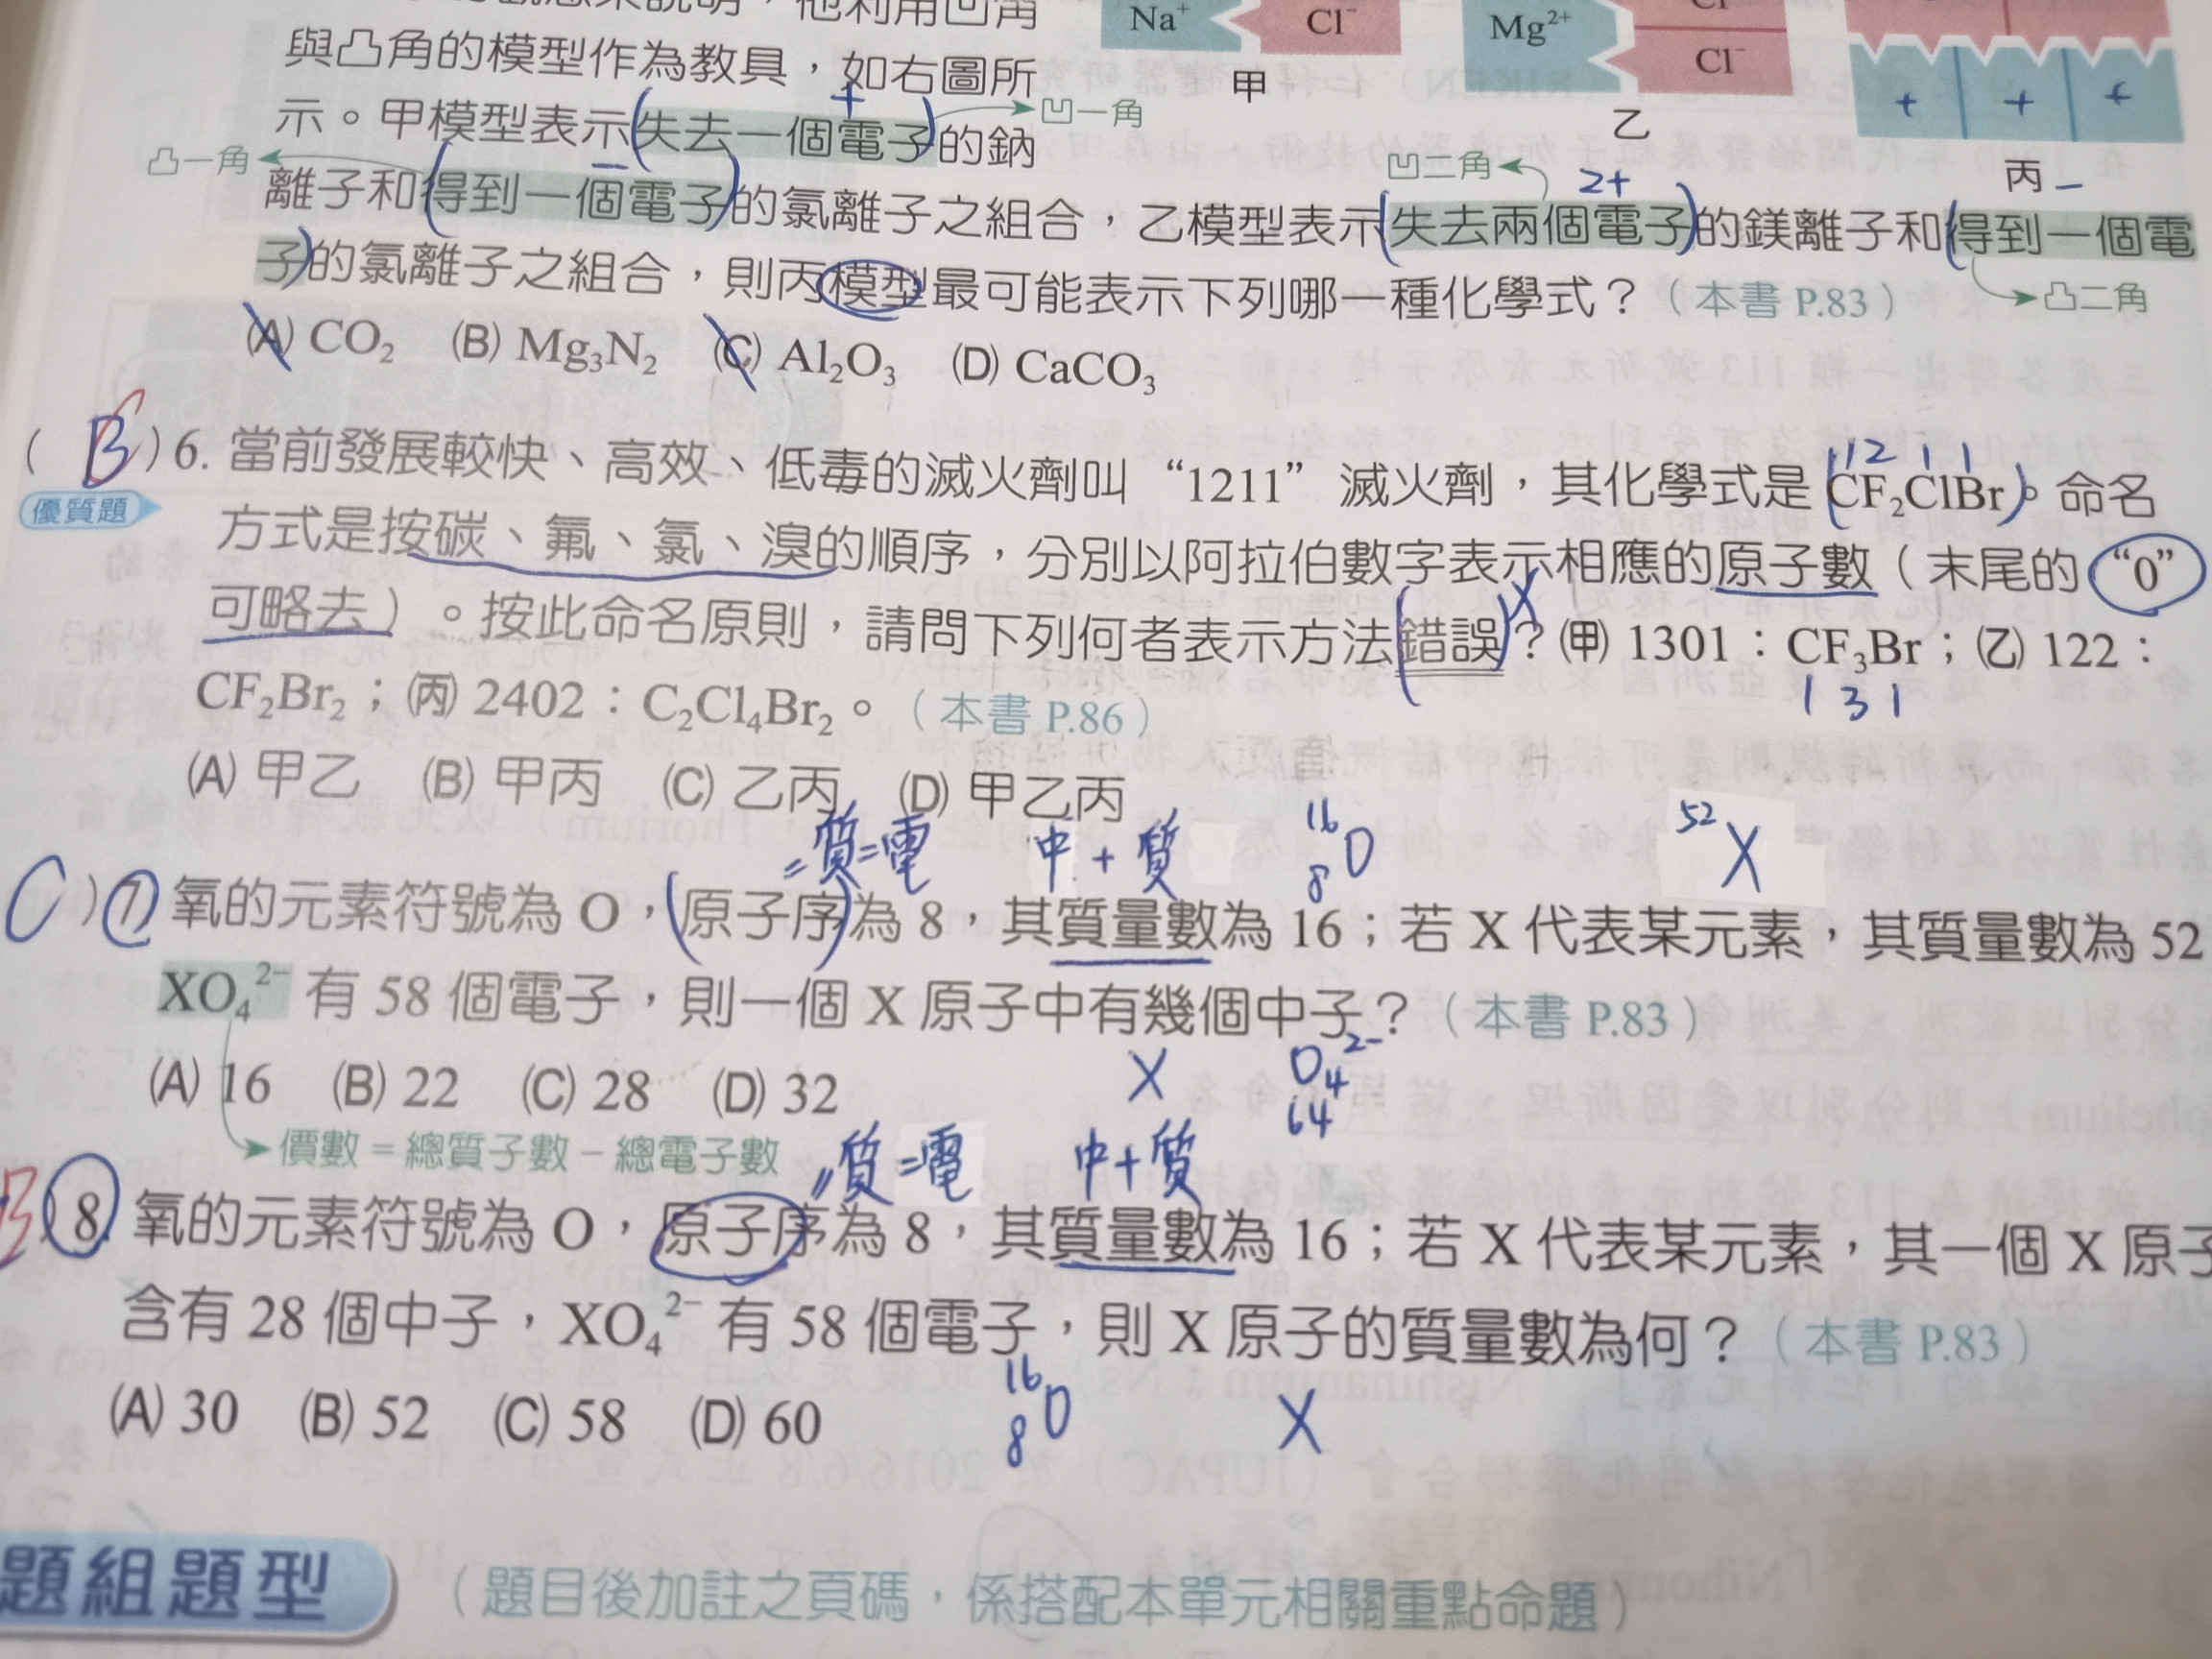 利用凹角
與凸角的模型作為教具，如右圖所
示。甲模型表示失去一個電子的鈉
離子和得到一個電子的氯離子之組合，乙模型表示失去兩個電子的鎂離子和得到一個電
子的氯離子之組合，則丙模型最可能表示下列哪一種化學式？（本書 P.83）
+
凹一角
凸一角
－
凹二角
2+
－
凸二角
Na⁺
Cl⁻
甲
Mg²⁺
Cl⁻
乙
+ + +
丙
(A) CO₂ (B) Mg₃N₂ (C) Al₂O₃ (D) CaCO₃
( B ) 6. 當前發展較快、高效、低毒的滅火劑叫“1211”滅火劑，其化學式是 CF₂ClBr。命名
1 1 2 1 1
優質題
方式是按碳、氟、氯、溴的順序，分別以阿拉伯數字表示相應的原子數（末尾的“0”
可略去）。按此命名原則，請問下列何者表示方法錯誤？㈙ 1301：CF₃Br；㈚ 122：
X
1 3 1
CF₂Br₂；㈛ 2402：C₂Cl₄Br₂。（本書 P.86）
(A) 甲乙 (B) 甲丙 (C) 乙丙 (D) 甲乙丙
=質=電 中+質 ¹⁶₈O ⁵²X
C ) 7. 氧的元素符號為 O，原子序為 8，其質量數為 16；若 X 代表某元素，其質量數為 52
XO₄²⁻ 有 58 個電子，則一個 X 原子中有幾個中子？（本書 P.83）
(A) 16 (B) 22 (C) 28 (D) 32
X O₄²⁻
64
價數＝總質子數－總電子數
=質=電 中+質
B ) 8. 氧的元素符號為 O，原子序為 8，其質量數為 16；若 X 代表某元素，其一個 X 原子
含有 28 個中子，XO₄²⁻ 有 58 個電子，則 X 原子的質量數為何？（本書 P.83）
(A) 30 (B) 52 (C) 58 (D) 60
¹⁶₈O X
題組題型
（題目後加註之頁碼，係搭配本單元相關重點命題）